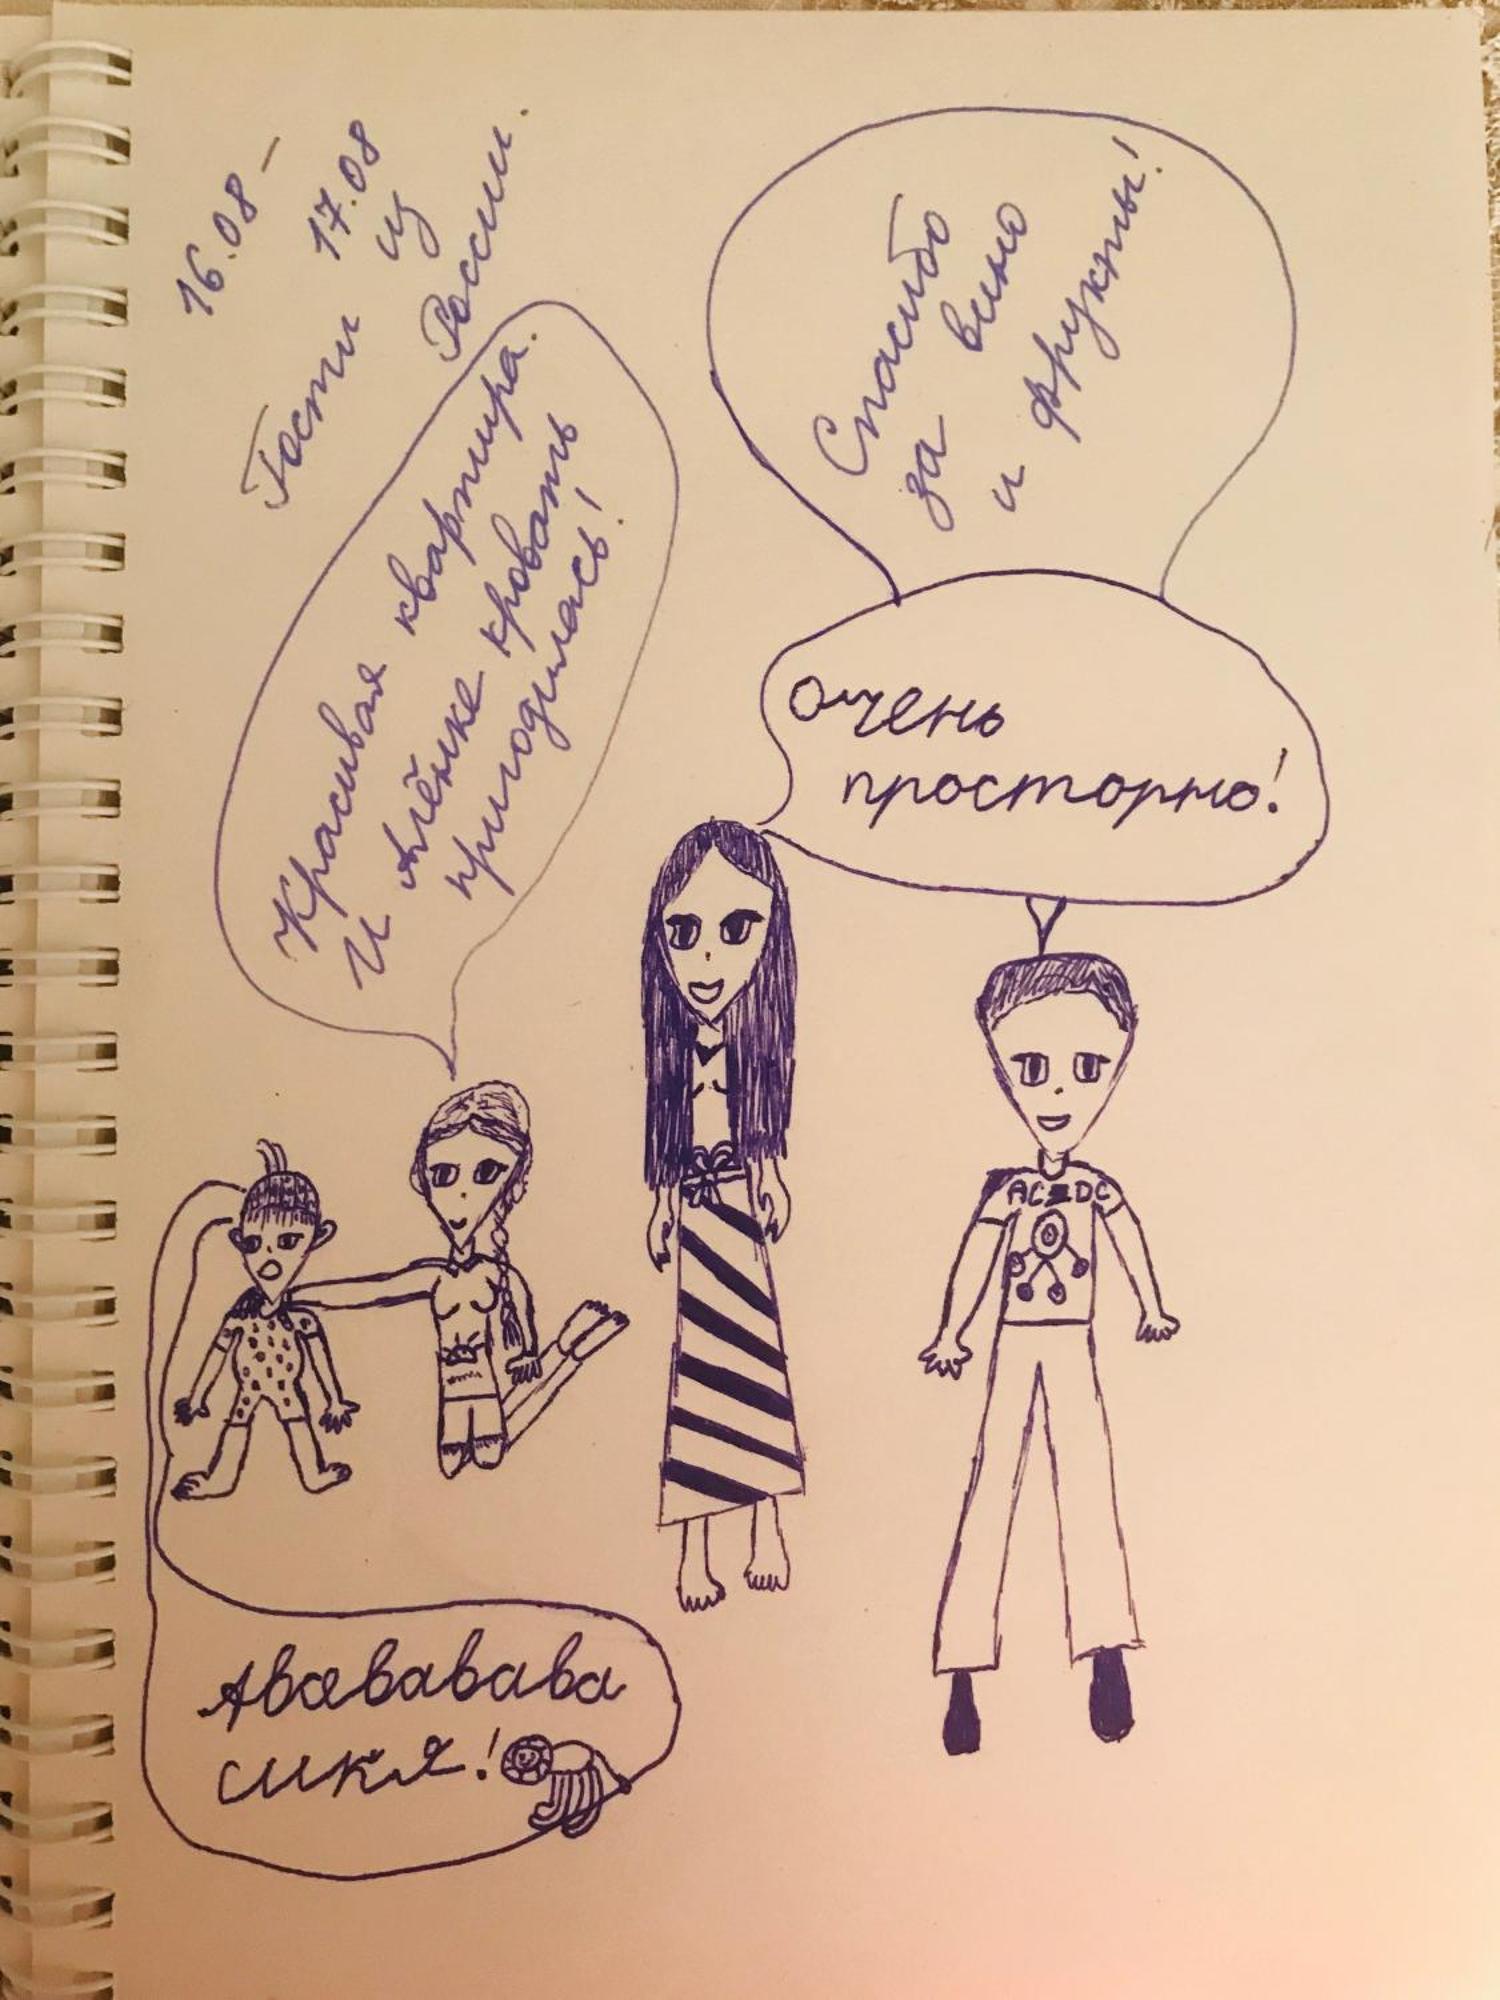 16.08 –
17.08
Гости из
России.
Красивая квартира.
И Алёнке кровать
пригодилась!
Спасибо
за вино
и фрукты!
Очень
просторно!
AC DC
Авававава
сикя!